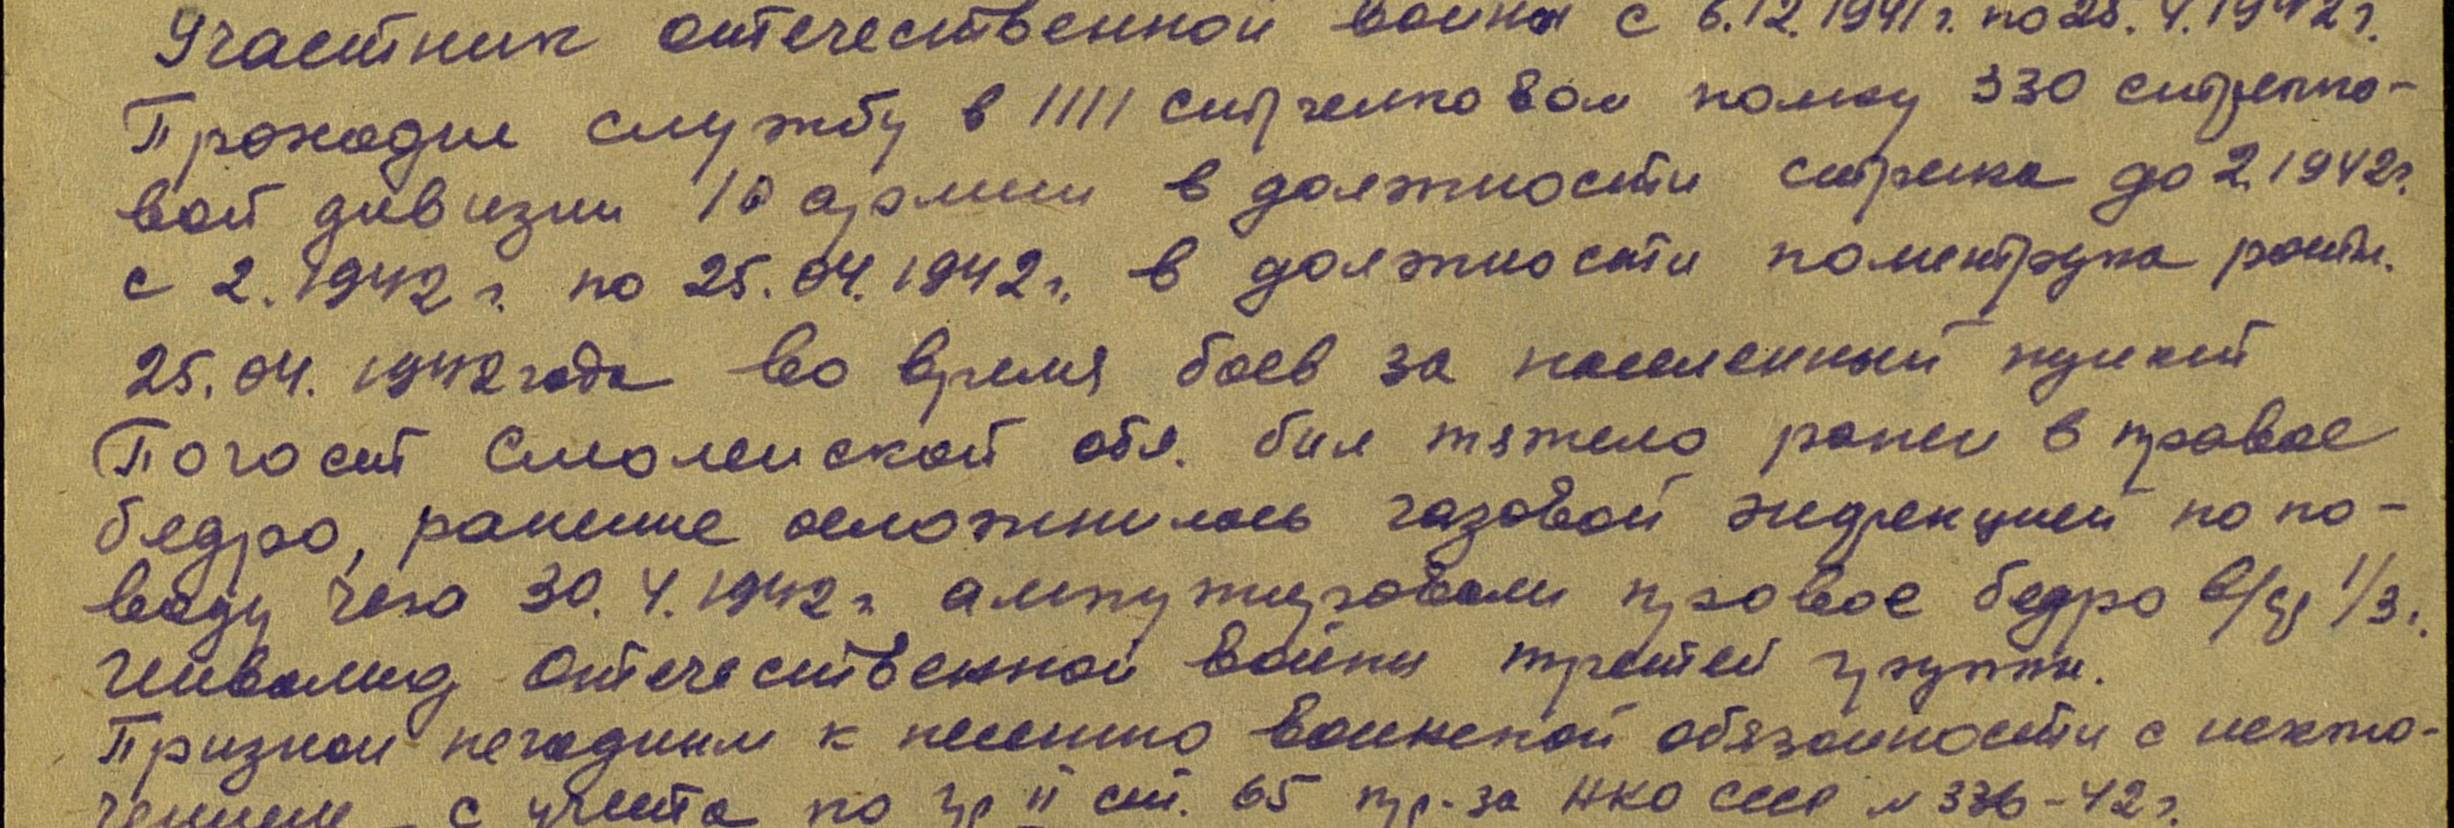 Участник отечественной войны с 6.12.1941 г. по 25.4.1942 г.
Проходил службу в 1111 стрелковом полку 330 стрелко-
вой дивизии 10 армии в должности стрелка до 2.1942 г.
с 2.1942 г. по 25.04.1942 г. в должности политрука роты.
25.04.1942 года во время боев за населенный пункт
Погост Смоленской обл. был тяжело ранен в правое
бедро, ранение осложнилось газовой инфекцией по по-
воду чего 30.4.1942 г ампутировали правое бедро в/ср 1/3.
Инвалид Отечественной войны третей группы.
Признан негодным к несению воинской обязанности с исклю-
чением с учета по гр II ст. 65 пр-за НКО СССР № 336-42 г.